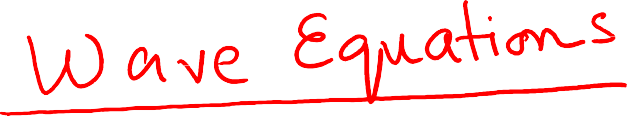 Wave Equations